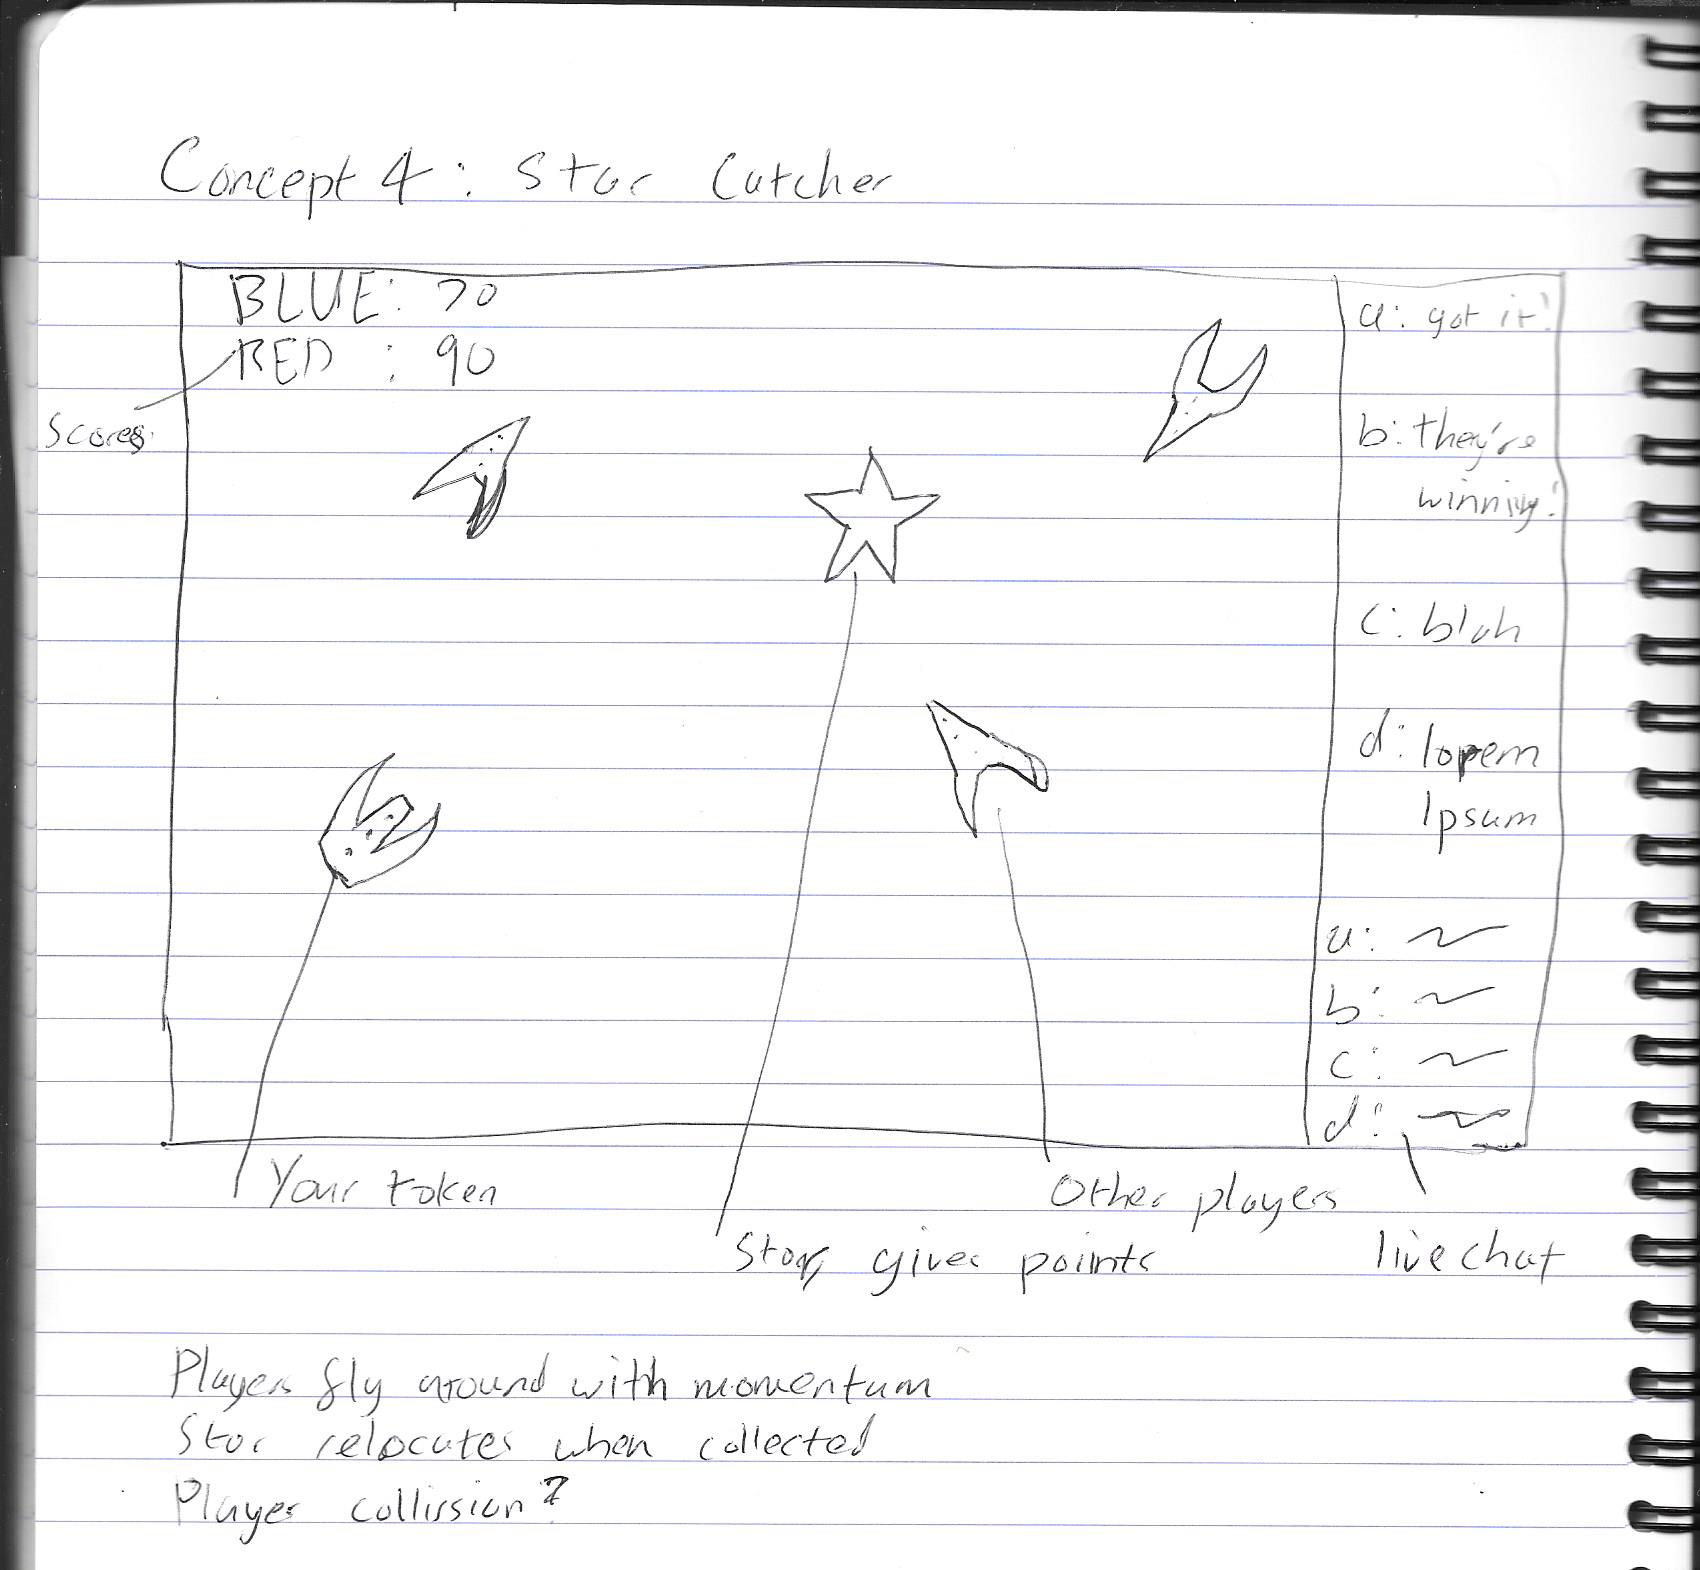 Concept 4: Star Catcher
BLUE: 70
RED : 90
Scores
a: got it!
b: they're
winning!
c: blah
d: lorem
Ipsum
a:
b:
c:
d:
Your token
Star, gives points
Other players
live chat
Players fly around with momentum
Star relocates when collected
Player collission?